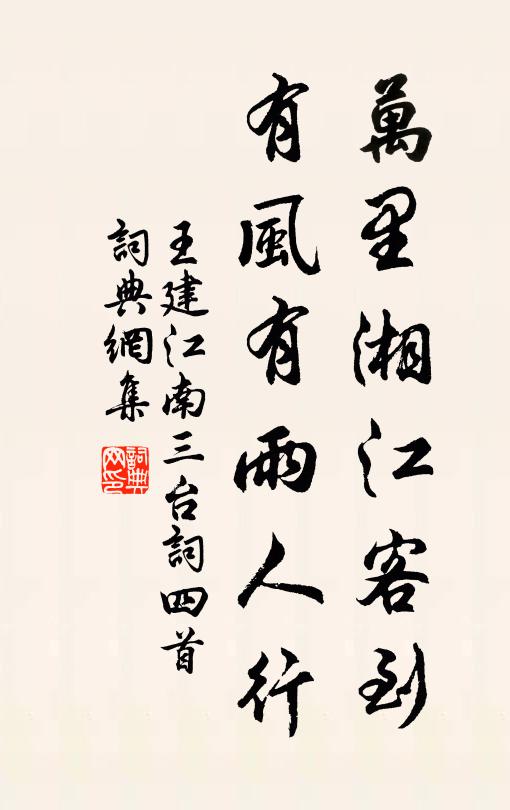 萬里湘江客到
有風有雨人行
王建江南三台詞四首
詞典網集
詞典網印